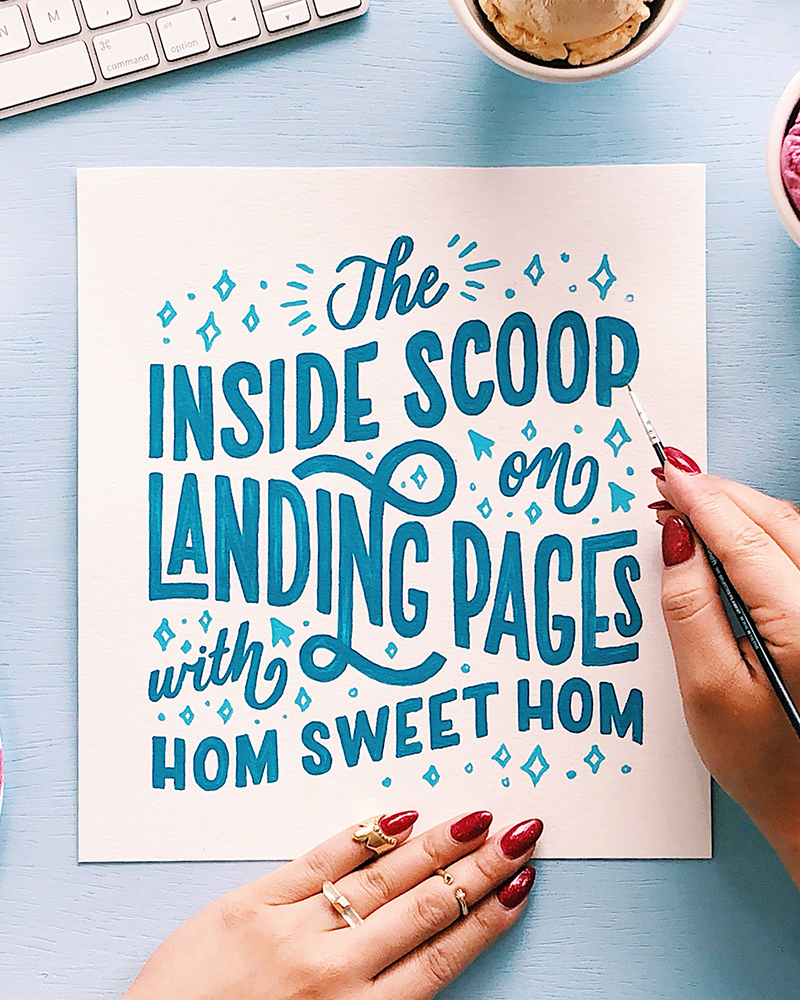 N M
⌘ alt
command option
The
INSIDE SCOOP
on
LANDING PAGES
with
HOM SWEET HOM